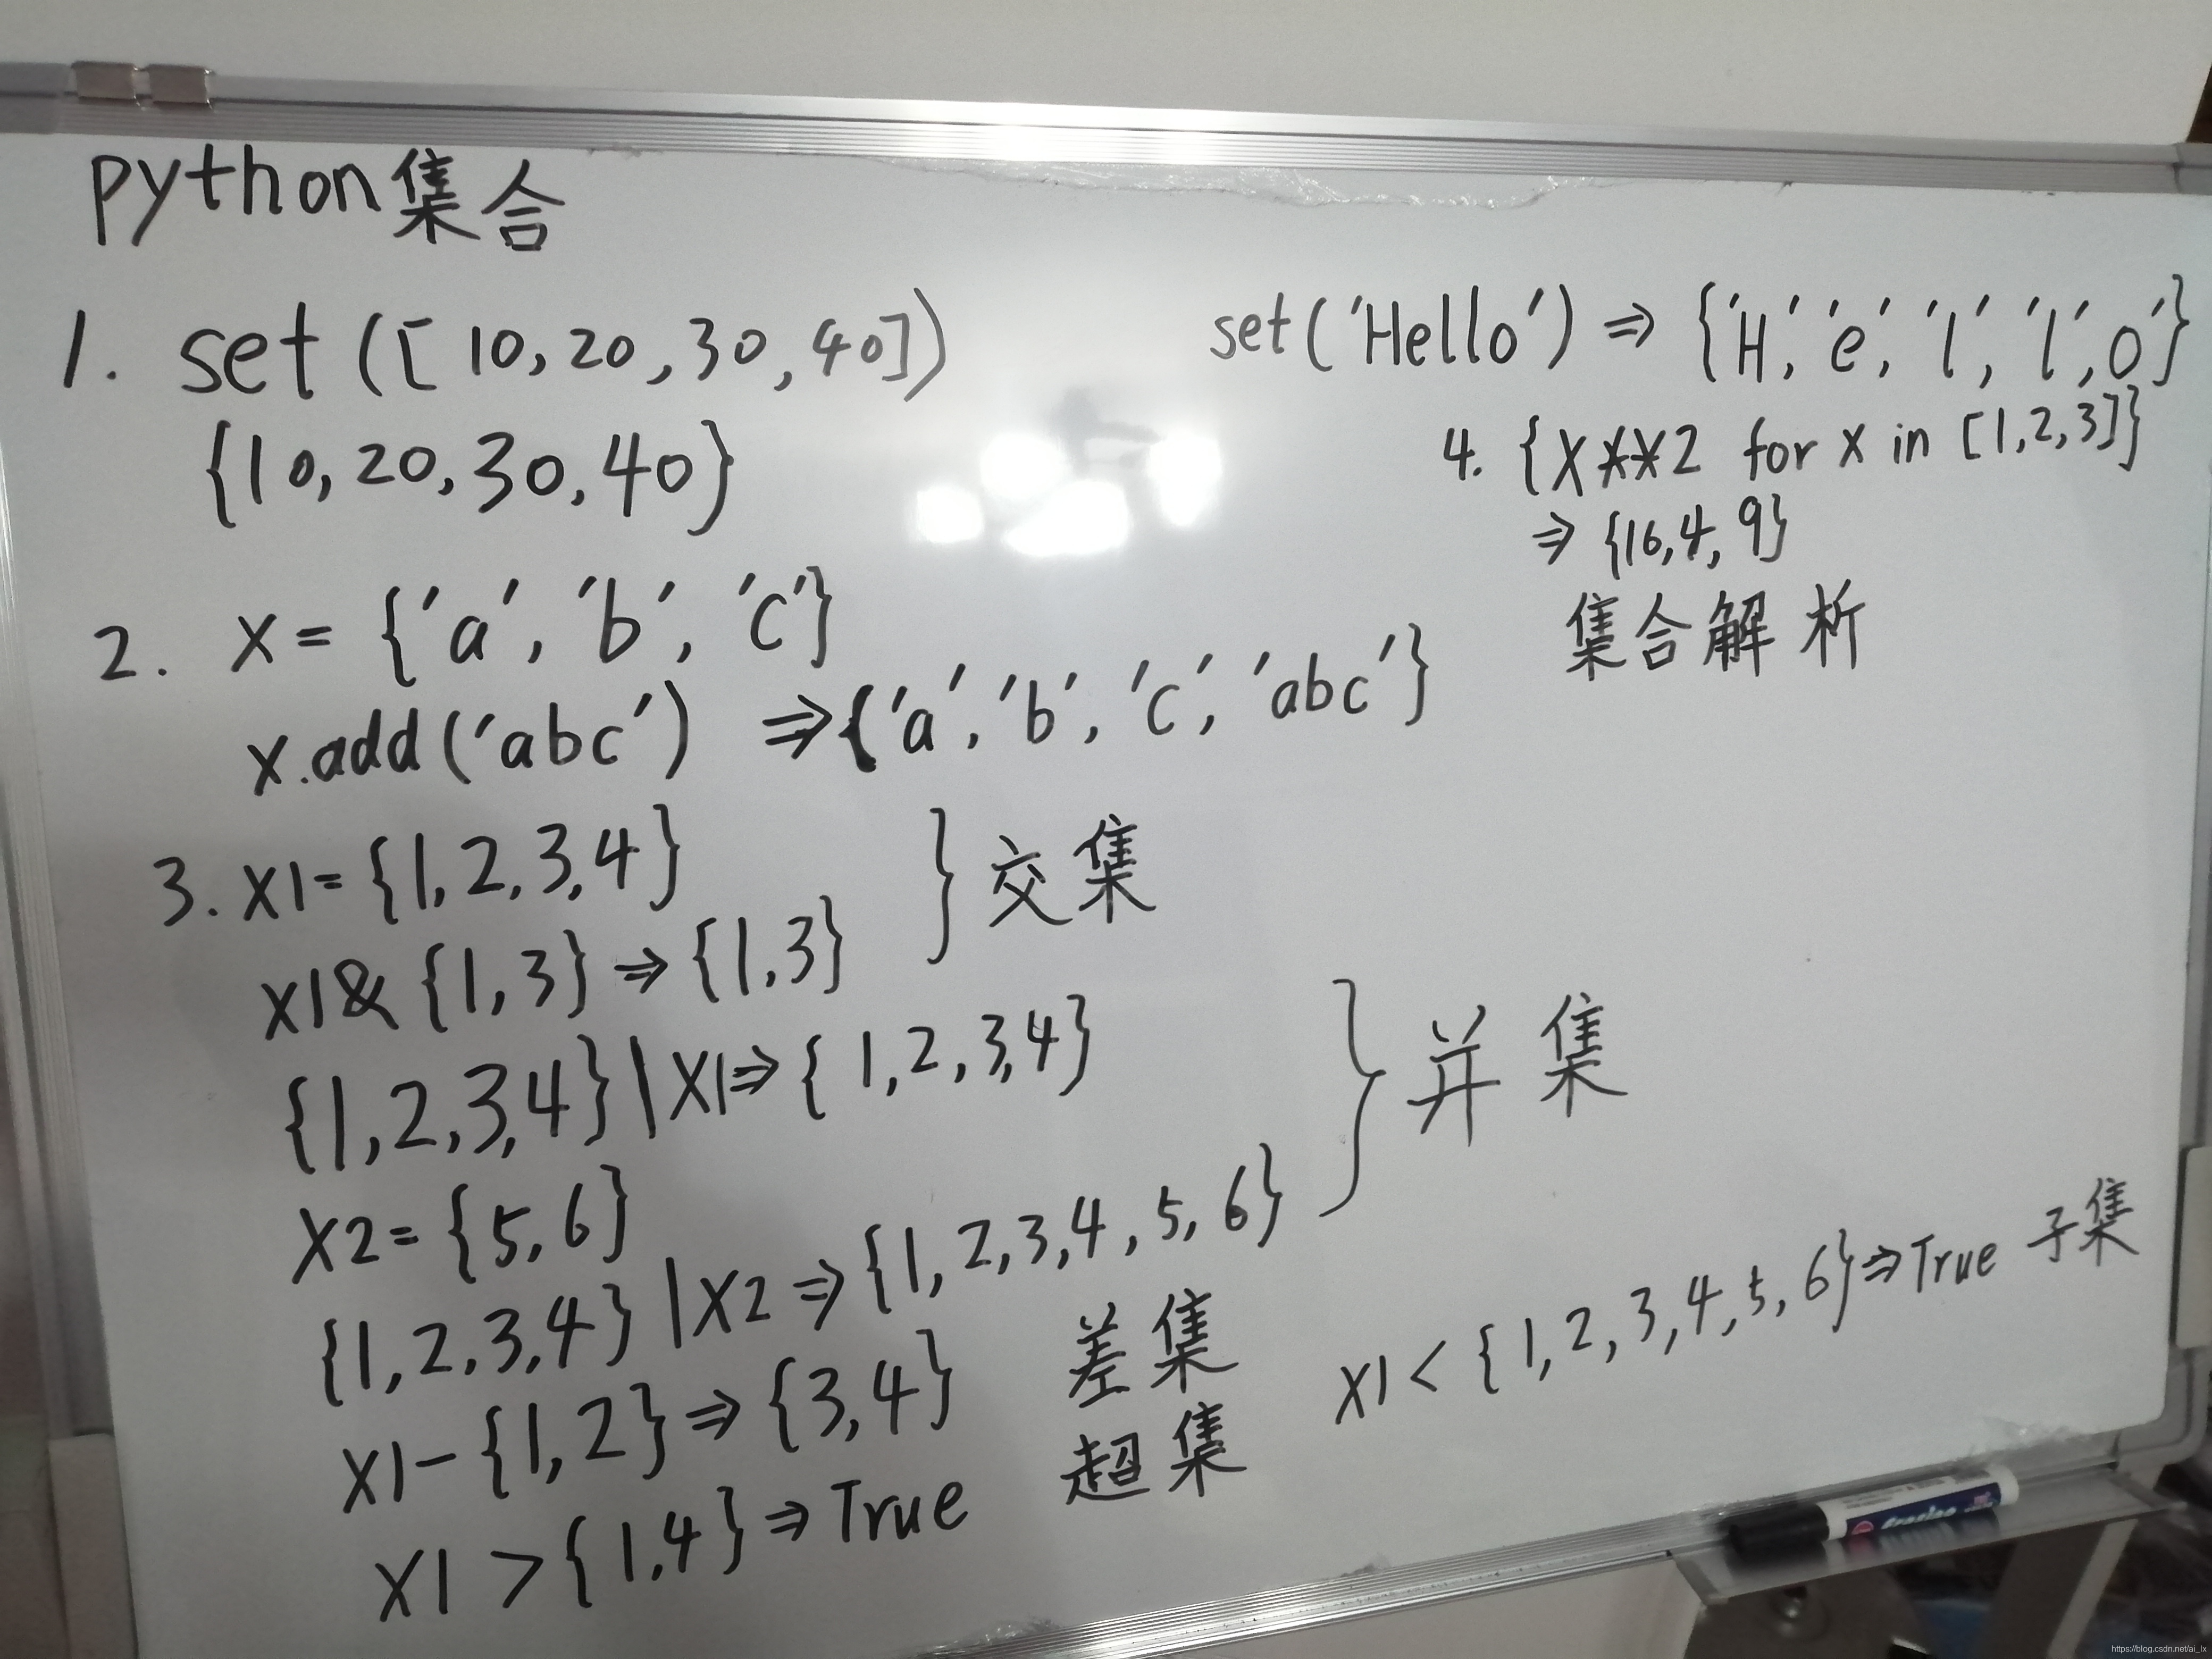 python集合
1. set([10,20,30,40])
{10,20,30,40}
set('Hello') ⇒ {'H','e','l','l',o'}
4. {X**2 for x in [1,2,3]}
⇒ {16,4,9}
集合解析
2. X = {'a','b','c'}
x.add('abc') ⇒ {'a','b','c','abc'}
3. X1={1,2,3,4}
X1&{1,3} ⇒ {1,3}
} 交集
{1,2,3,4}|X1⇒{1,2,3,4}
X2={5,6}
{1,2,3,4}|X2⇒{1,2,3,4,5,6}
} 并集
X1-{1,2}⇒{3,4} 差集
X1>{1,4}⇒True 超集
X1<{1,2,3,4,5,6}⇒True 子集
https://blog.csdn.net/ai_lx